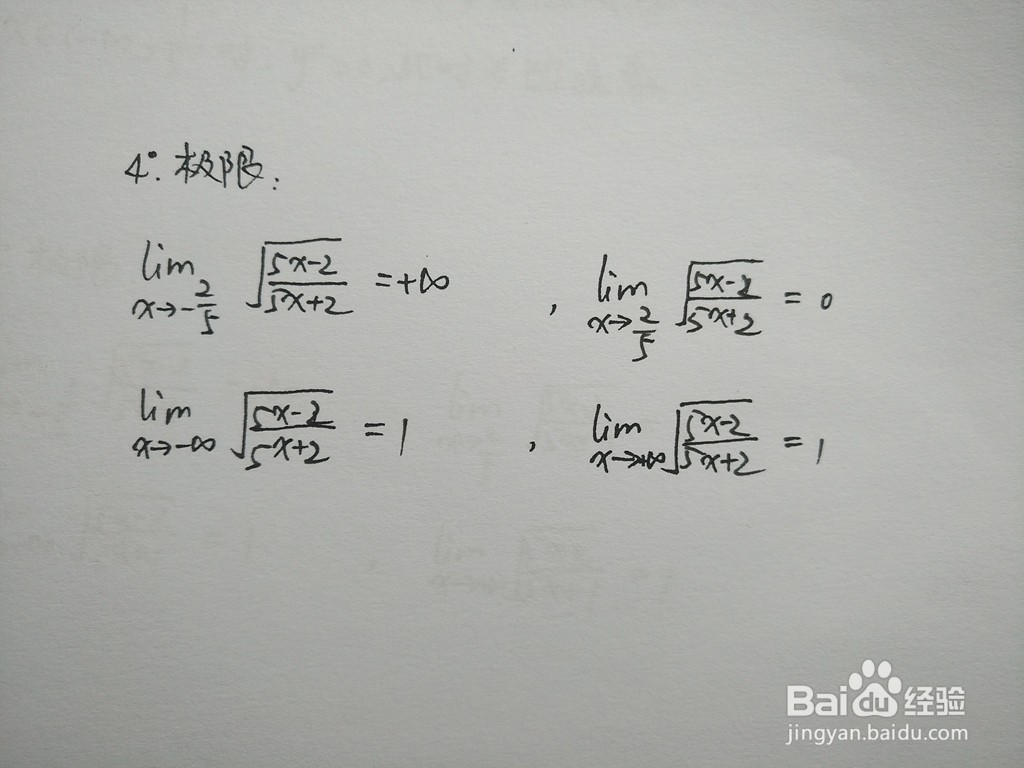 4°. 极限:
lim x→-2/5 √((5x-2)/(5x+2)) = +∞ , lim x→2/5 √((5x-2)/(5x+2)) = 0
lim x→-∞ √((5x-2)/(5x+2)) = 1 , lim x→+∞ √((5x-2)/(5x+2)) = 1
Bai du 经验
jingyan.baidu.com